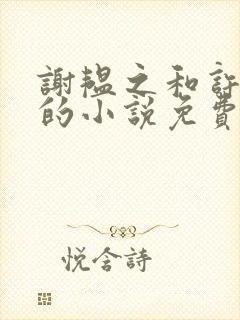 謝韞之和許
的小說免費
悅含詩